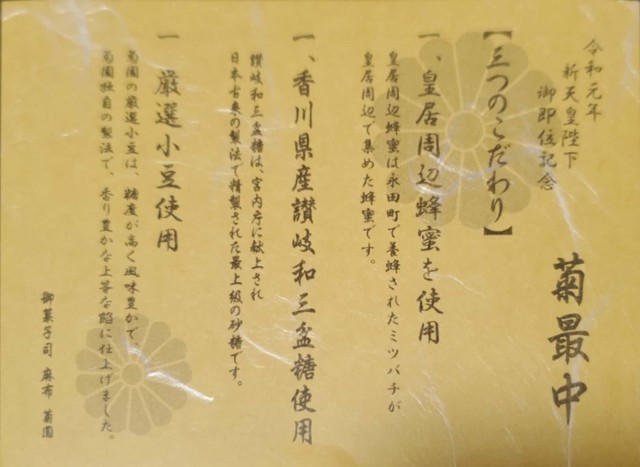 令和元年
新天皇陛下
御即位記念
菊最中
【三つのこだわり】
一、皇居周辺蜂蜜を使用
皇居周辺蜂蜜は永田町で養蜂されたミツバチが
皇居周辺で集めた蜂蜜です。
一、香川県産讃岐和三盆糖使用
讃岐和三盆糖は、宮内庁に献上され
日本古来の製法で精製された最上級の砂糖です。
一 厳選小豆使用
菊園の厳選小豆は、糖度が高く風味豊かで
菊園独自の製法で、香り豊かな上等な餡に仕上げました。
御菓子司 麻布 菊園